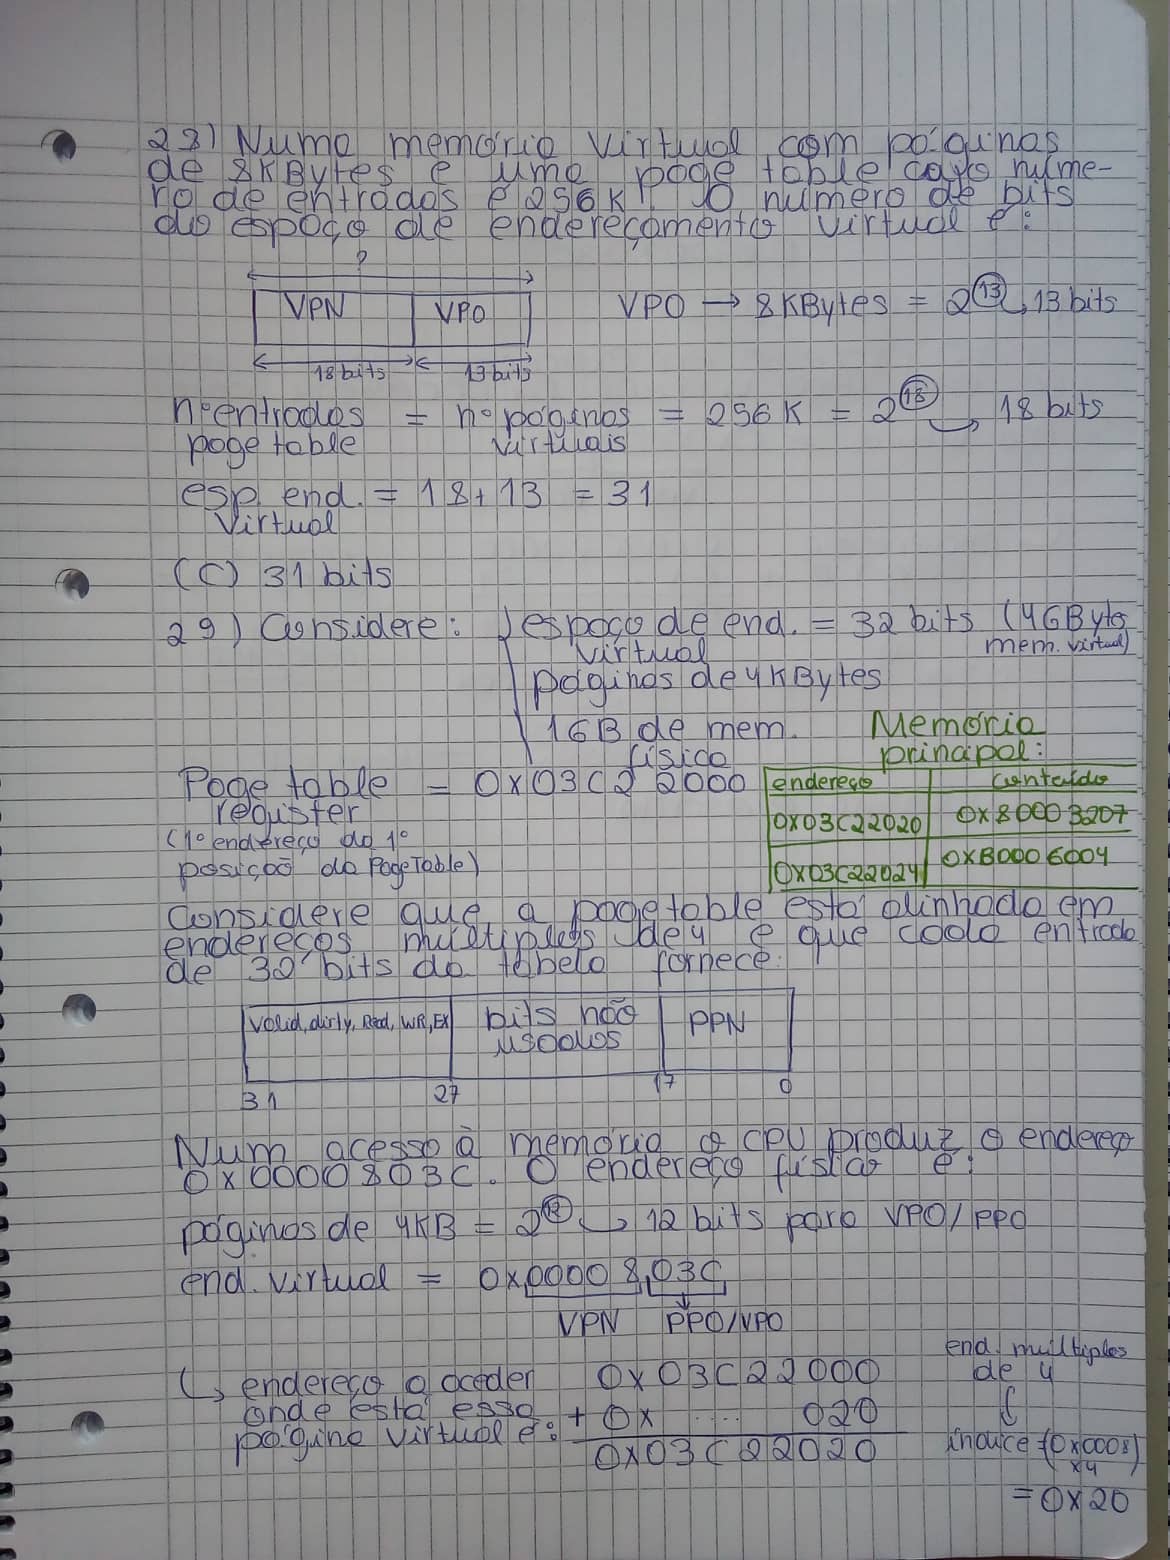 28) Numa memória virtual com páginas
de 8KBytes e uma page table cujo núme-
ro de entradas é 256K. O número de bits
do espaço de endereçamento virtual é:
?
VPN VPO
VPO → 8KBytes = 2^13 → 13 bits
18 bits 13 bits
nº entradas = nº páginas = 256K = 2^18 → 18 bits
page table virtuais
esp. end. = 18 + 13 = 31
virtual
(C) 31 bits
29) Considere: espaço de end. = 32 bits (4GByte
virtual mem. virtual)
páginas de 4KBytes
1GB de mem.
física
Memória
principal:
Page table = 0x03C22000
register
(1º endereço da 1º
posição da PageTable)
endereço conteúdo
0x03C22020 0x80003207
0x03C22024 0xB0006004
Considere que a pagetable está alinhada em
endereços múltiplos de 4 e que cada entrada
de 32 bits da tabela fornece:
Valid, dirty, Read, WR, EX bits não PPN
usados
31 27 17 0
Num acesso à memória o CPU produz o endereço
0x0000803C. O endereço físico é:
páginas de 4KB = 2^12 → 12 bits para VPO/PPO
end. virtual = 0x00008 03C
VPN PPO/VPO
↳ endereço a aceder 0x03C22000
onde está essa + 0x .... 020
página virtual é: 0x03C22020
end. múltiplos
de 4
índice (0x0008)
x4
= 0x20